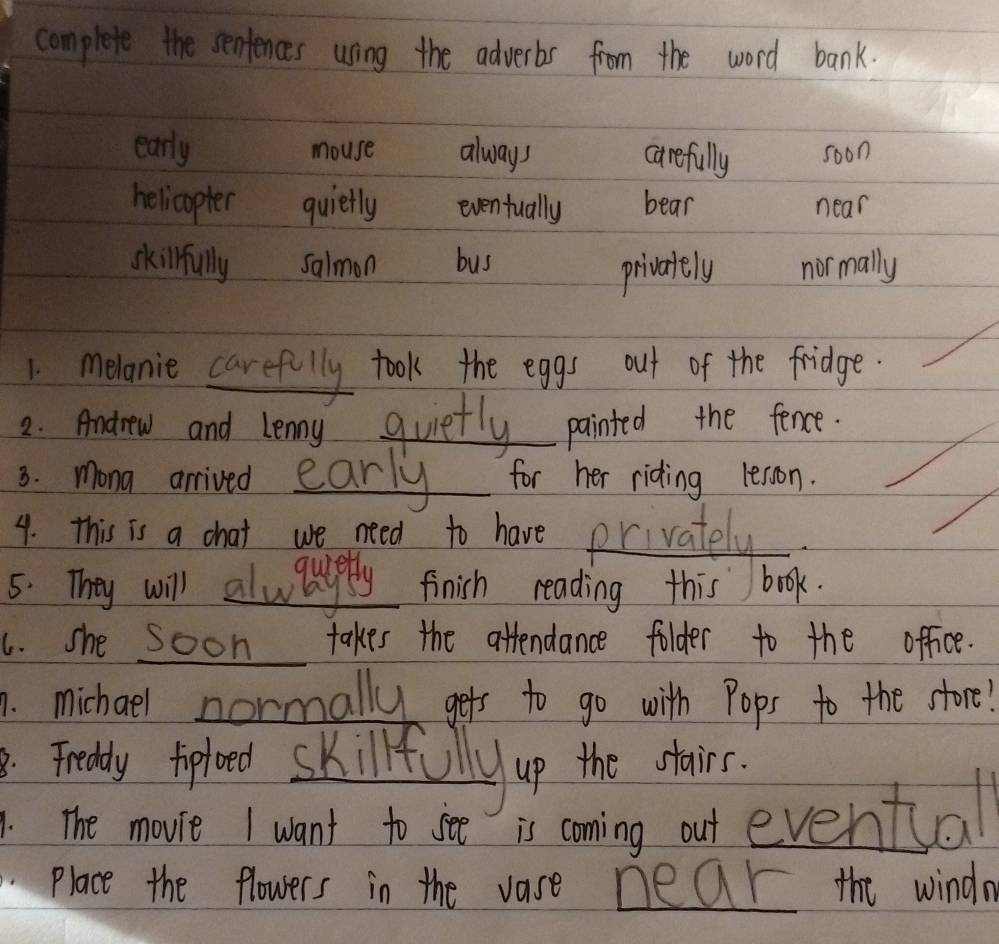 complete the sentences using the adverbs from the word bank.
early mouse always carefully soon
helicopter quietly eventually bear near
skillfully salmon bus privately normally
1. Melanie carefully took the eggs out of the fridge.
2. Andrew and Lenny quietly painted the fence.
3. Mona arrived early for her riding lesson.
4. This is a chat we need to have privately.
quietly
5. They will always finish reading this book.
6. She soon takes the attendance folder to the office.
7. Michael normally gets to go with Pops to the store!
8. Freddy tiptoed skillfully up the stairs.
9. The movie I want to see is coming out eventuall
Place the flowers in the vase near the windo